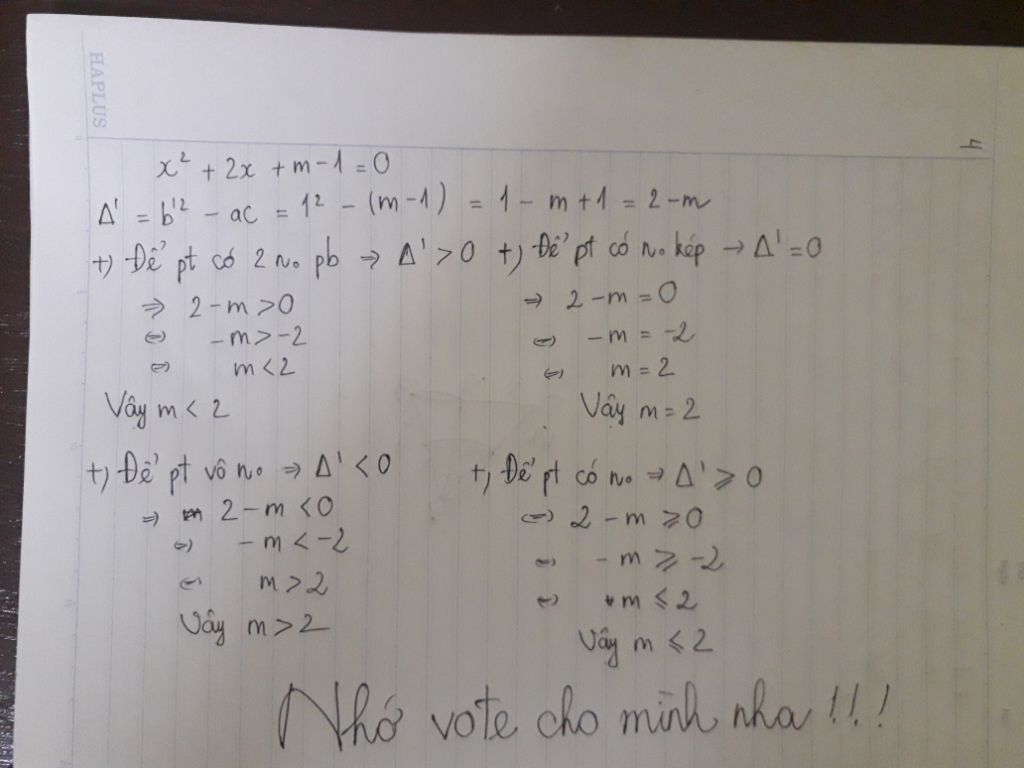 HAPLUS
4
x² + 2x + m - 1 = 0
Δ' = b'² - ac = 1² - (m - 1) = 1 - m + 1 = 2 - m
+) Để pt có 2 no pb => Δ' > 0
=> 2 - m > 0
<=> - m > -2
<=> m < 2
Vây m < 2
+) Để pt có no kép → Δ' = 0
=> 2 - m = 0
<=> - m = -2
<=> m = 2
Vậy m = 2
+) Để pt vô no => Δ' < 0
=> 2 - m < 0
<=> - m < -2
<=> m > 2
Vây m > 2
+) Để pt có no → Δ' ⩾ 0
<=> 2 - m ⩾ 0
<=> - m ⩾ -2
<=> m ⩽ 2
Vậy m ⩽ 2
Nhớ vote cho mình nha !!!